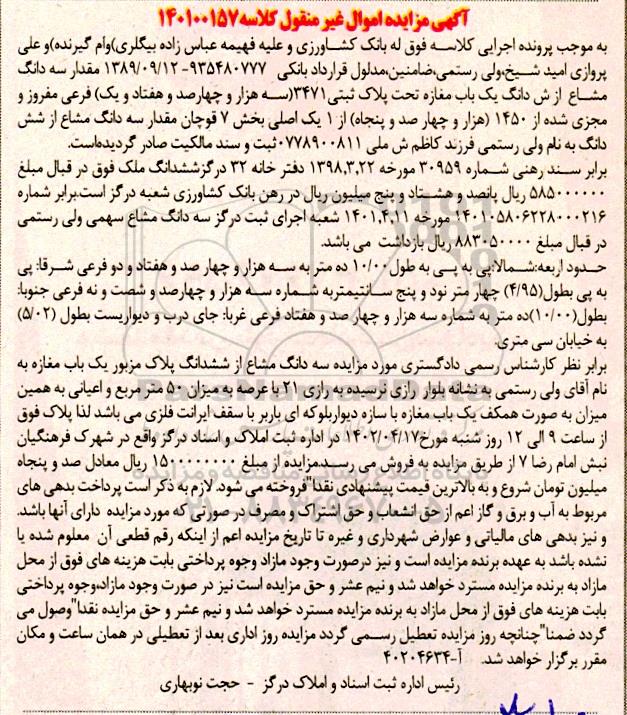 آگهی مزایده اموال غیر منقول کلاسه ۱۴۰۱۰۰۱۵۷
به موجب پرونده اجرایی کلاسه فوق له بانک کشاورزی و علیه فهیمه عباس زاده بیگلری(وام گیرنده)و علی
پروازی امید شیخ،ولی رستمی،ضامنین،مدلول قرارداد بانکی ۹۳۵۴۸۰۷۷۷-۱۳۸۹/۰۹/۱۲ مقدار سه دانگ
مشاع از ش دانگ یک باب مغازه تحت پلاک ثبتی ۳۴۷۱(سه هزار و چهارصد و هفتاد و یک) فرعی مفروز و
مجزی شده از ۱۴۵۰ (هزار و چهار صد و پنجاه) از ۱ یک اصلی بخش ۷ قوچان مقدار سه دانگ مشاع از شش
دانگ به نام ولی رستمی فرزند کاظم ش ملی ۰۷۷۸۹۰۰۸۱۱ثبت و سند مالکیت صادر گردیده‌است.
برابر سند رهنی شماره ۳۰۹۵۹ مورخه ۱۳۹۸,۳,۲۲ دفتر خانه ۳۲ درگزششدانگ ملک فوق در قبال مبلغ
۵۸۵۰۰۰۰۰۰ ریال پانصد و هشتاد و پنج میلیون ریال در رهن بانک کشاورزی شعبه درگز است.برابر شماره
۱۴۰۱۰۵۸۰۶۲۲۸۰۰۰۲۱۶ مورخه ۱۴۰۱,۴,۱۱ شعبه اجرای ثبت درگز سه دانگ مشاع سهمی ولی رستمی
در قبال مبلغ ۸۸۳۰۵۰۰۰۰ ریال بازداشت می باشد.
حدود اربعه:شمالا:پی به پی به طول۱۰/۰۰ ده متر به سه هزار و چهار صد و هفتاد و دو فرعی شرقا: پی
به پی بطول(۴/۹۵) چهار متر نود و پنج سانتیمتربه شماره سه هزار و چهارصد و شصت و نه فرعی جنوبا:
بطول(۱۰/۰۰)ده متر به شماره سه هزار و چهار صد و هفتاد فرعی غربا: جای درب و دیواریست بطول (۵/۰۲)
به خیابان سی متری.
برابر نظر کارشناس رسمی دادگستری مورد مزایده سه دانگ مشاع از ششدانگ پلاک مزبور یک باب مغازه به
نام آقای ولی رستمی به نشانه بلوار رازی نرسیده به رازی ۲۱ با عرصه به میزان ۵۰ متر مربع و اعیانی به همین
میزان به صورت همکف یک باب مغازه با سازه دیواربلوکه ای باربر با سقف ایرانت فلزی می باشد لذا پلاک فوق
از ساعت ۹ الی ۱۲ روز شنبه مورخ۱۴۰۲/۰۴/۱۷ در اداره ثبت املاک و اسناد درگز واقع در شهرک فرهنگیان
نبش امام رضا ۷ از طریق مزایده به فروش می رسد.مزایده از مبلغ ۱۵۰۰۰۰۰۰۰۰ ریال معادل صد و پنجاه
میلیون تومان شروع و به بالاترین قیمت پیشنهادی نقدا"فروخته می شود. لازم به ذکر است پرداخت بدهی های
مربوط به آب و برق و گاز اعم از حق انشعاب و حق اشتراک و مصرف در صورتی که مورد مزایده دارای آنها باشد.
و نیز بدهی های مالیاتی و عوارض شهرداری و غیره تا تاریخ مزایده اعم از اینکه رقم قطعی آن معلوم شده یا
نشده باشد به عهده برنده مزایده است و نیز درصورت وجود مازاد وجوه پرداختی بابت هزینه های فوق از محل
مازاد به برنده مزایده مسترد خواهد شد و نیم عشر و حق مزایده است نیز در صورت وجود مازاد،وجوه پرداختی
بابت هزینه های فوق از محل مازاد به برنده مزایده مسترد خواهد شد و نیم عشر و حق مزایده نقدا"وصول می
گردد ضمنا"چنانچه روز مزایده تعطیل رسمی گردد مزایده روز اداری بعد از تعطیلی در همان ساعت و مکان
مقرر برگزار خواهد شد. آ-۴۰۲۰۴۶۳۴
رئیس اداره ثبت اسناد و املاک درگز - حجت نوبهاری